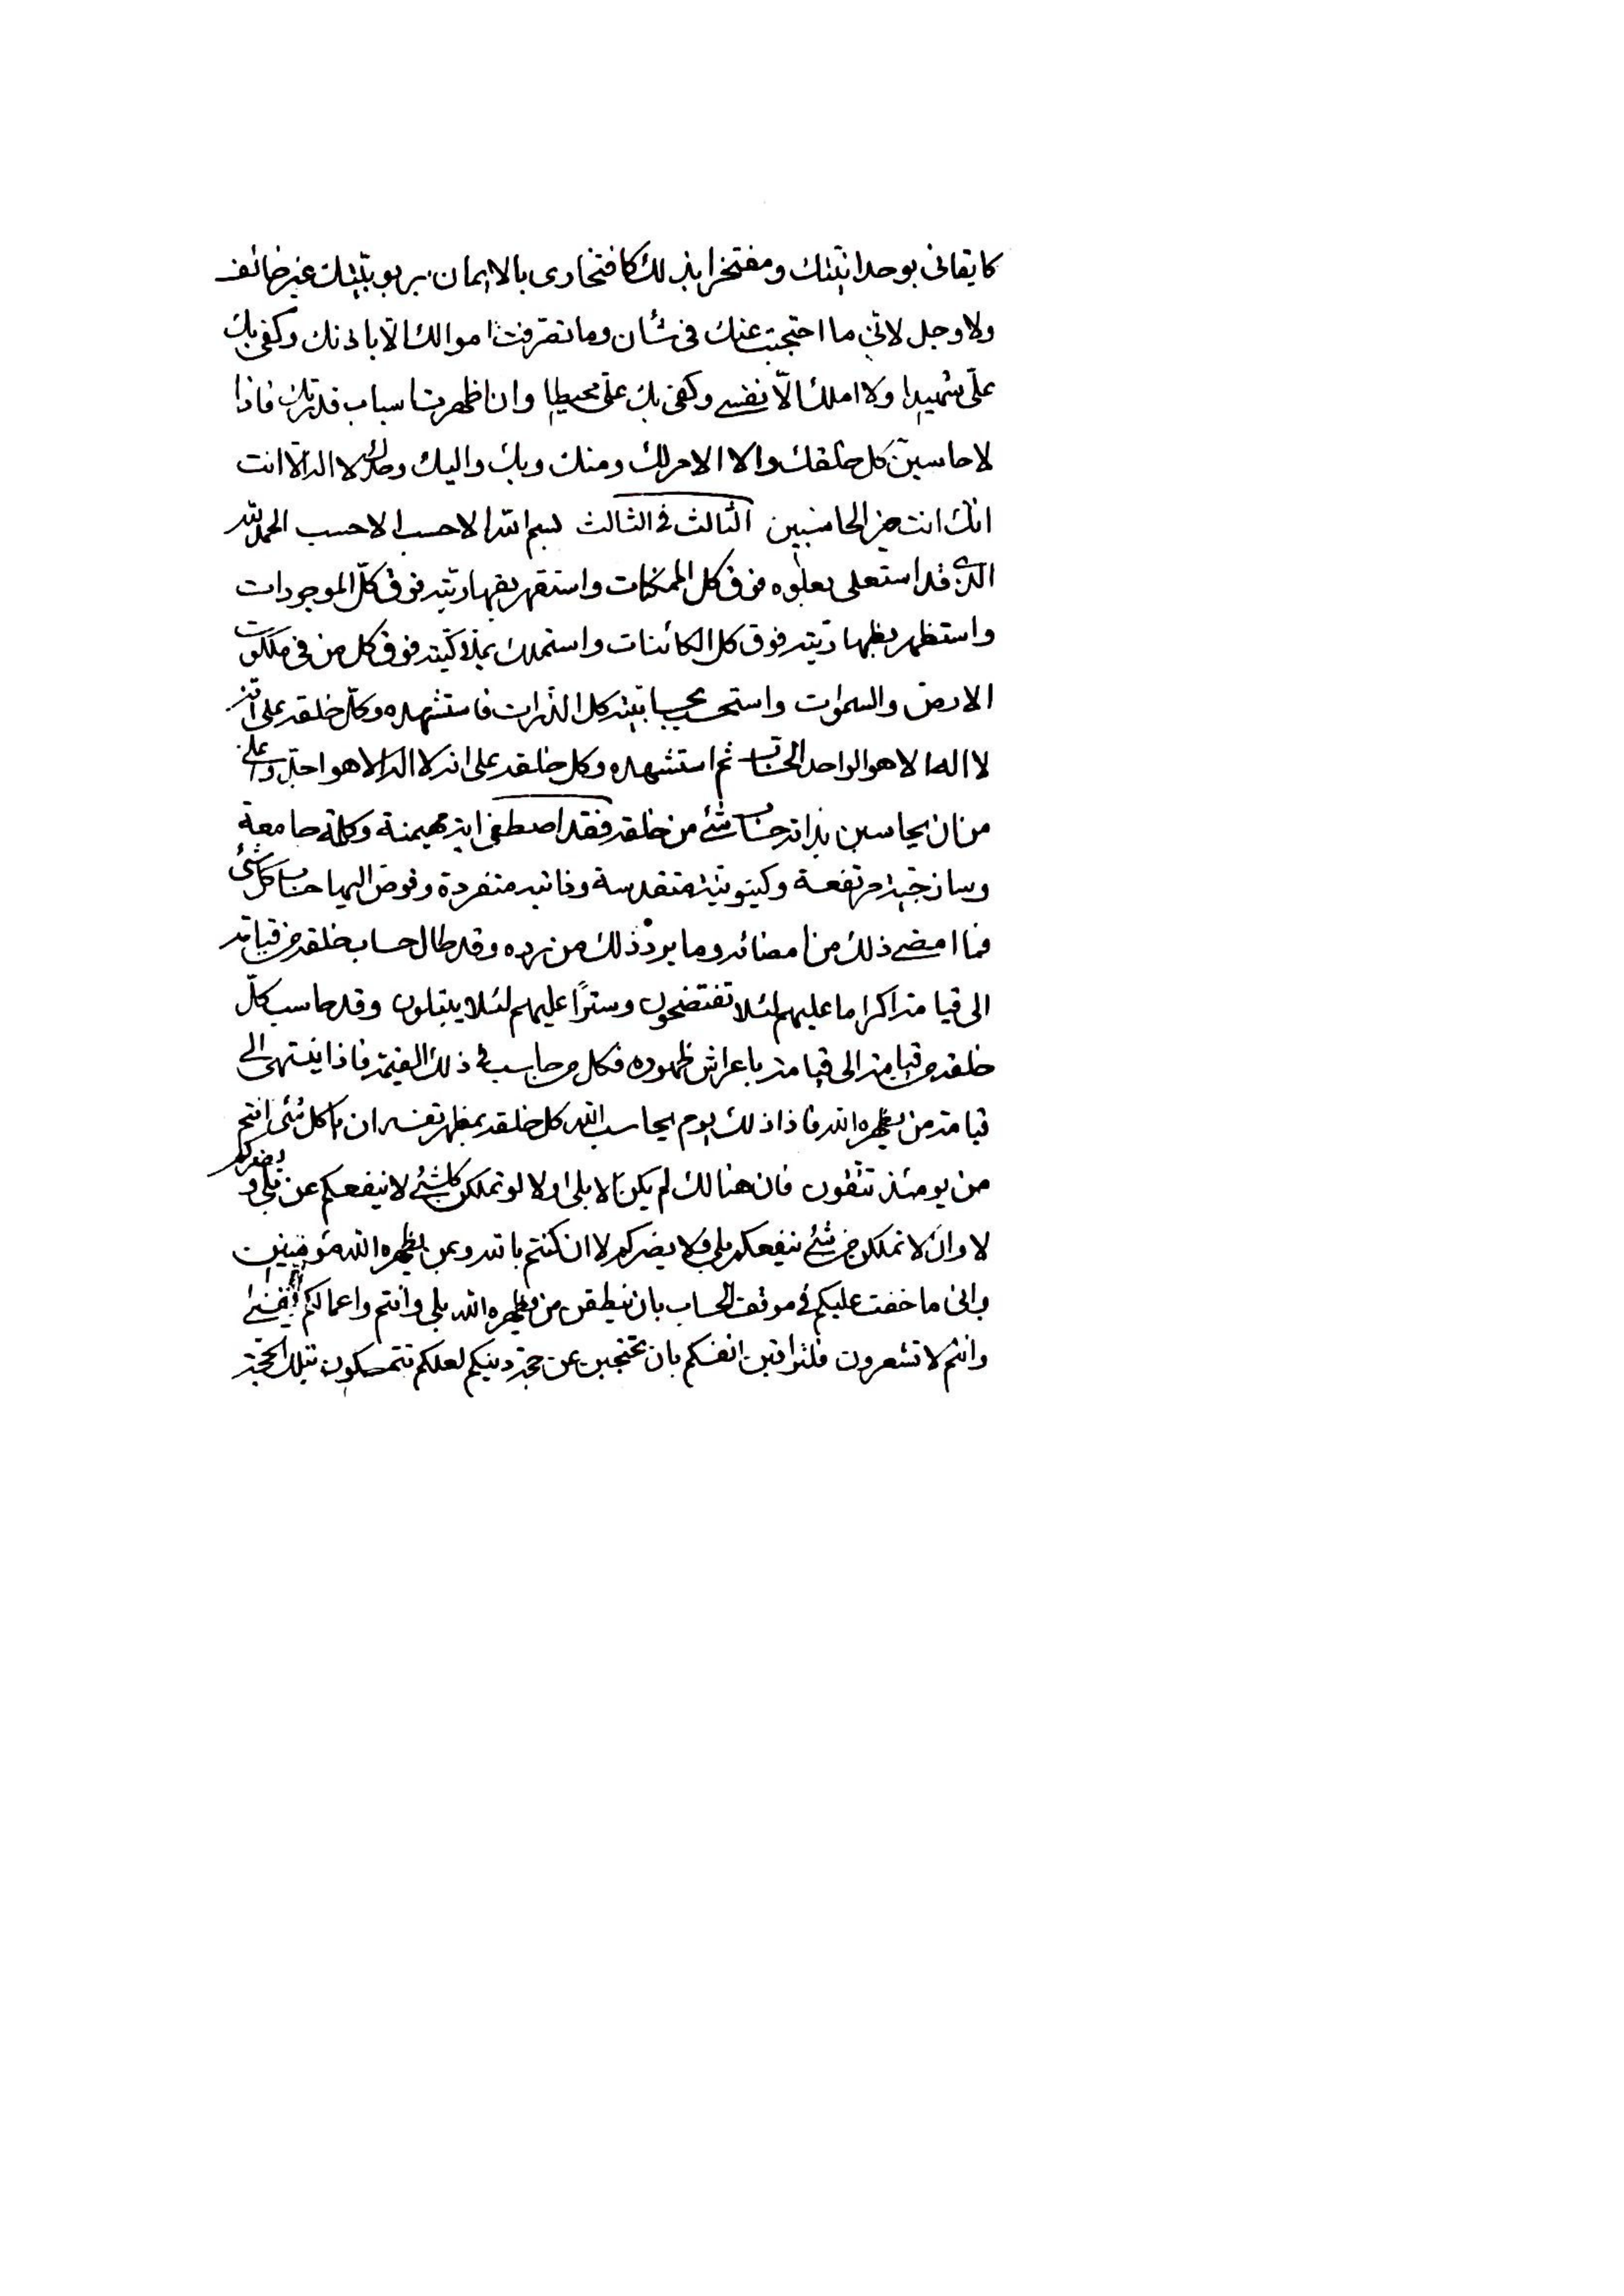 كايقانى بوحدانيّتك ومفتخرا بذلك كافتخارى بالايمان بربوبيّتك غير خائف
ولا وجل لانّى ما احتجبت عنك فى شأن وما تصرفت اموالك الّا باذنك وكفى بك
علىّ شهيدا ولا املك الّا نفسى وكفى بك علىّ محيطا وان اظهرت اسباب قدرتك فاذا
لاحاسبنّ كل خلقك والا الامر لك ومنك وبك واليك وحدك لا اله الا انت
انّك انت خير الحاسبين الثالث فى الثالث بسم الله الاحسب الاحسب الحمد لله
الذى قد استعلى بعلوه فوق كل الممكنات واستقهر بقهاريّته فوق كلّ الموجودات
واستظهر بظهاريّته فوق كل الكائنات واستملك بملاكيّته فوق كل من فى ملكوت
الارض والسموات واستحسب بحسابيّته كل الذرات فاستشهده وكلّ خلقه على انّه
لا اله الا هو الواحد الحسّاب ثم استشهده وكل خلقه على انه لا اله الا هو اجلّ واعلى
من ان يحاسبن بذاته حساب شئ من خلقه فقد اصطفى اية مهيمنة وكلمة جامعة
وساذجيّة مرتفعة وكينونيّة متقدسة وذاتية منفردة وفوض اليها حساب كل شئ
فما امضى ذلك من امضائه وما يردّ ذلك من رده وقد طال حساب خلقه من قيامة
الى قيامة اكراما عليهم لئلا تفتضحون وسترًا عليهم لئلا يبتلون وقد حاسب كلّ
خلقه من قيامة الى قيامة باعراش ظهوره فكل من حاسب فى ذلك القيمة فاذا ينتهى الى
قيامة من يظهره الله فاذا ذلك يوم يحاسب الله كل خلقه بمظهر نفسه ان يا كل شئ انتم
من يومئذ تتّقون فان هنالك لم يكن الا بلى او لا لو تملكن كلشئ لا ينفعكم عن بلى ويضركم
لا وان لا تملكن من شئ ينفعكم بلى ولا يضركم لا ان كنتم بالله وبمن يظهره الله مؤمنين
وانى ما خفت عليكم فى موقف الحساب بان ينطقن من يظهره الله بلى وانتم واعمالكم
وانتم لا تشعرون فلتراقبن انفسكم بان تحتجبن عن حجة دينكم لعلكم تتمسكون بتلك الحجّة